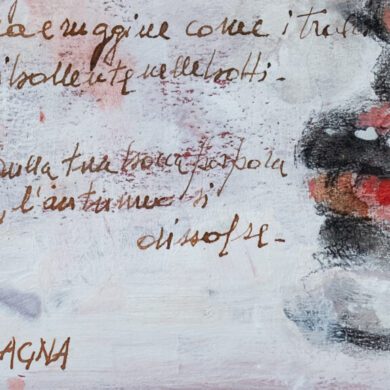 a e ruggine come i
ibollente nelle botti -
sulla tua bocca porpora
, l'autunno si
dissolse -
AGNA